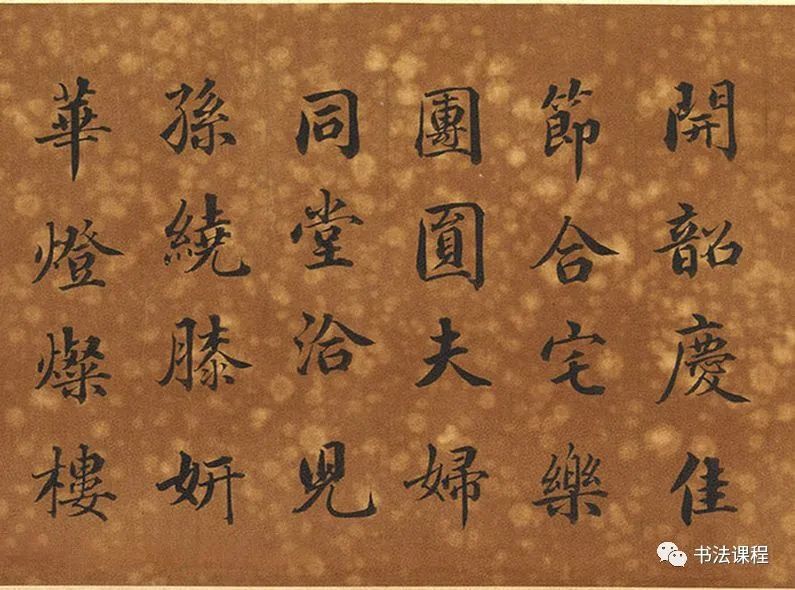 開韶慶佳
節合宅樂
團圓夫婦
同堂洽兒
孫繞膝妍
華燈燦樓
书法课程